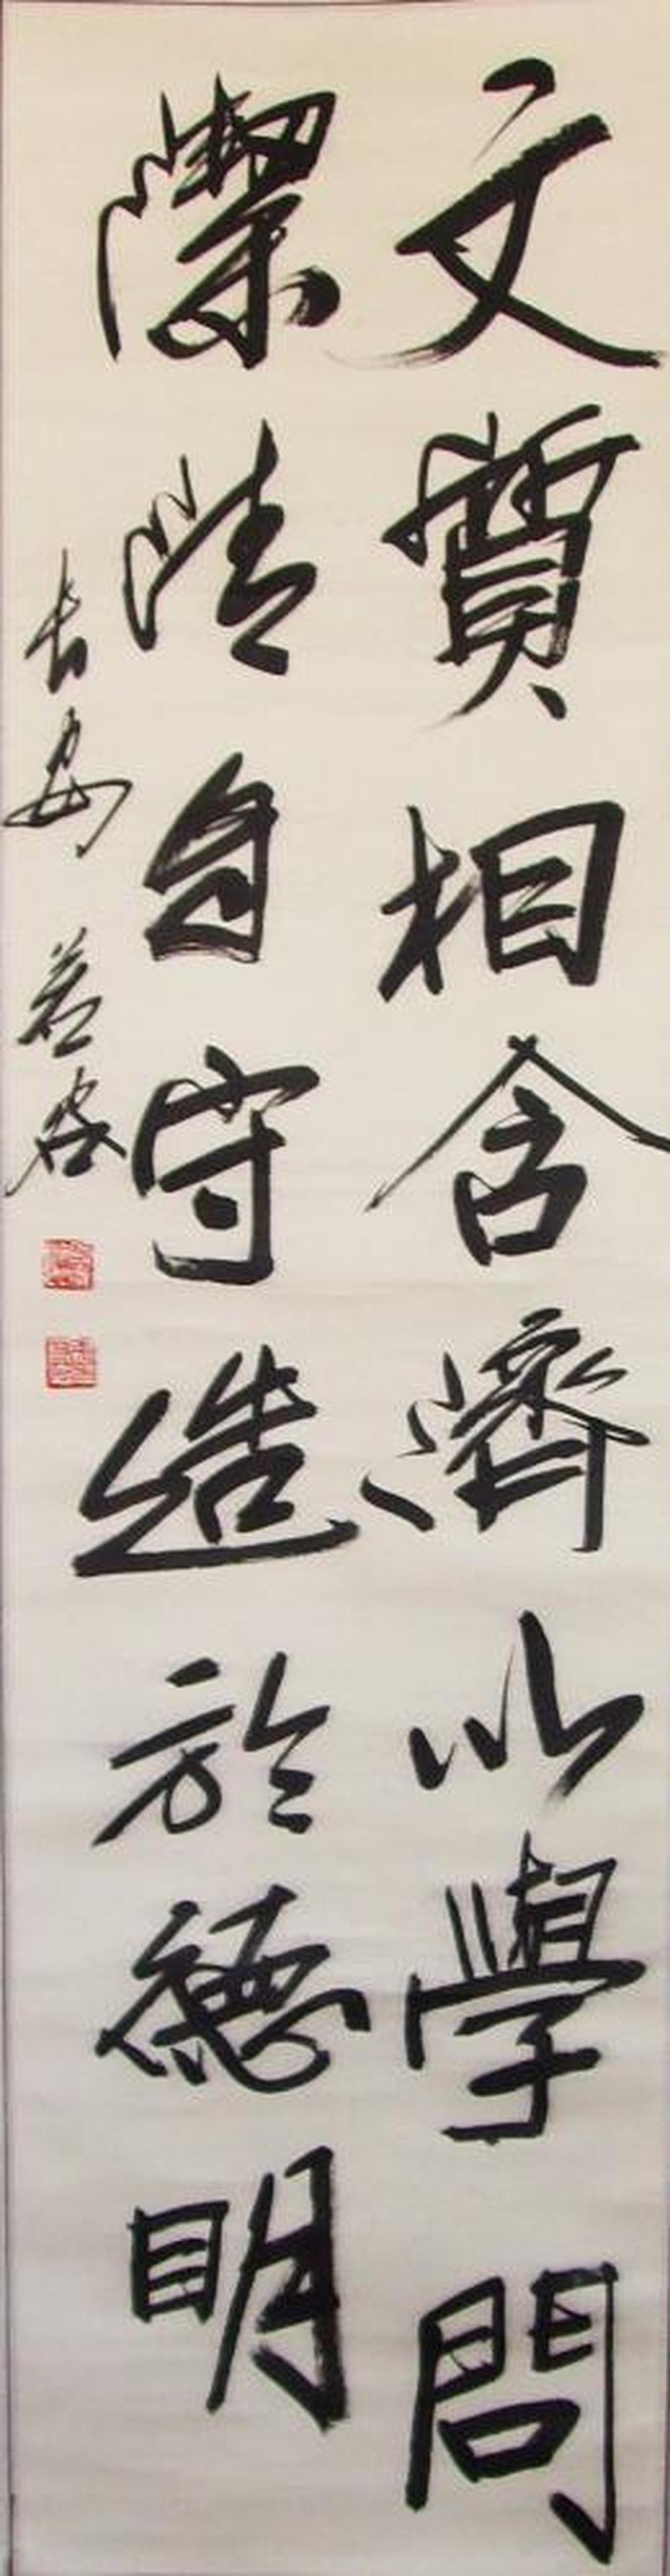 文質相含濟以學問
潔清自守造於德明
長安 若谷